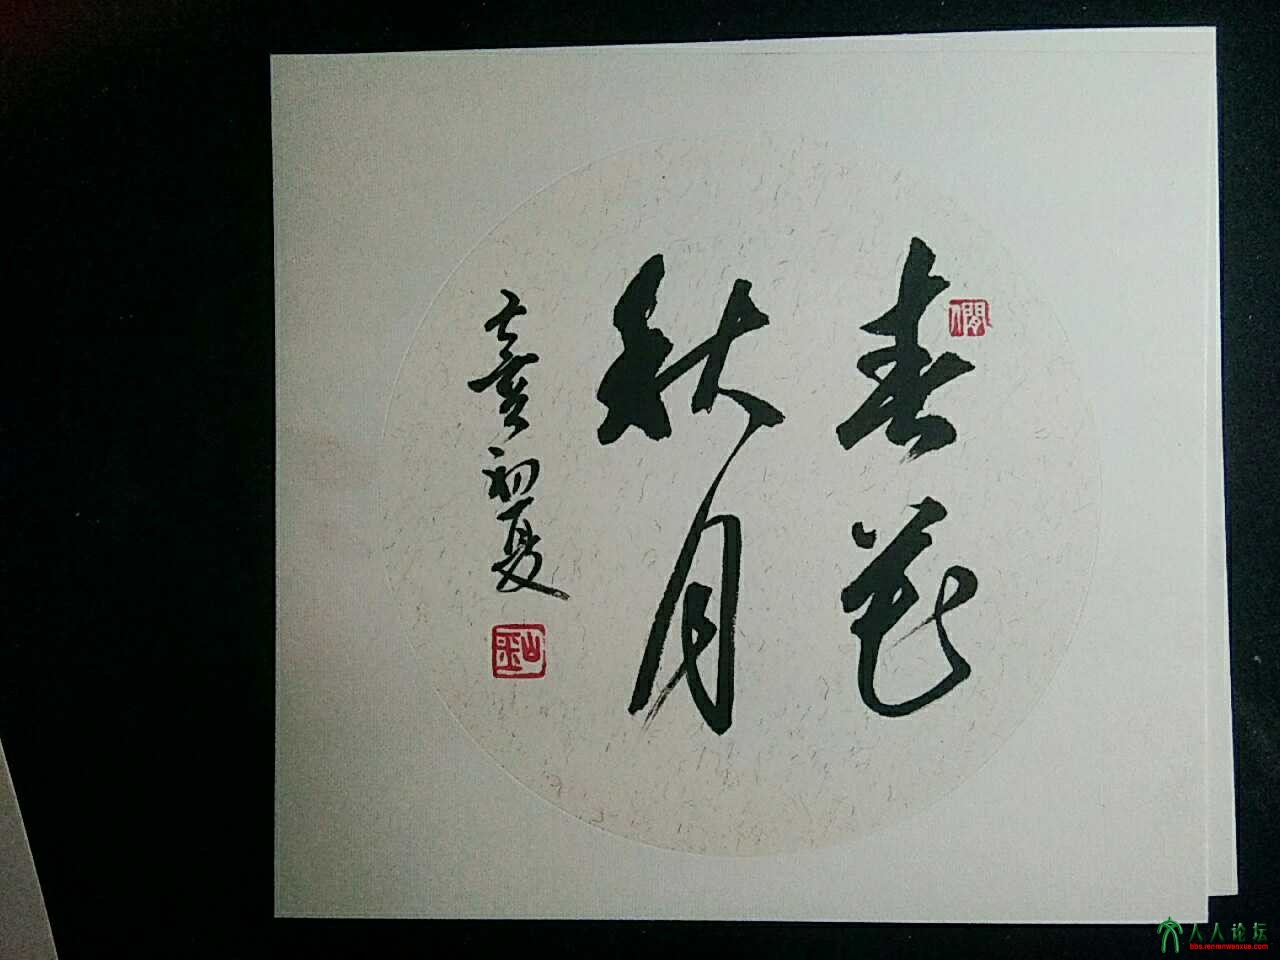 春花
秋月
己亥初夏
人人论坛
bbs.renrenwenxue.com